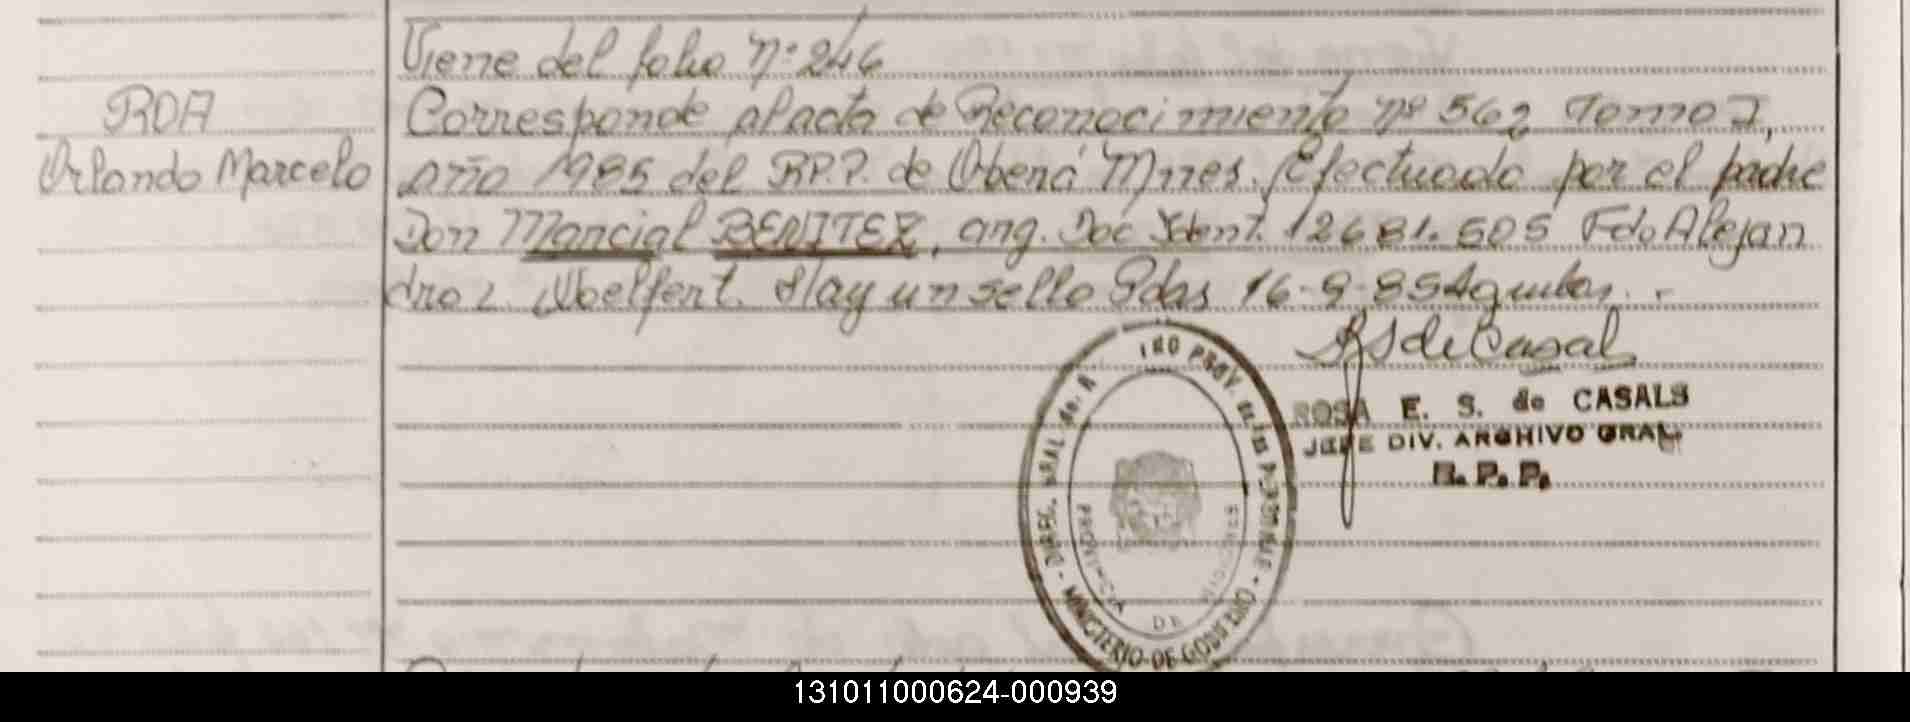 Viene del folio nº 246
ROA
Orlando Marcelo
Corresponde al acta de Reconocimiento nº 562 Tomo I,
año 1985 del RP.P. de Oberá Mnes. Efectuado por el padre
Don Marcial BENITEZ, arg. Doc Ident. 12681.505 Fdo Alejan
dro L. Woelfert. Hay un sello Pdas 16-9-85
RS de Casal
ROSA E. S. de CASALS
JEFE DIV. ARCHIVO GRAL
R. P. P.
DIREC. GRAL de PROV. DE LAS PERSONAS - MINISTERIO DE GOBIERNO
PROVINCIA DE MISIONES
131011000624-000939